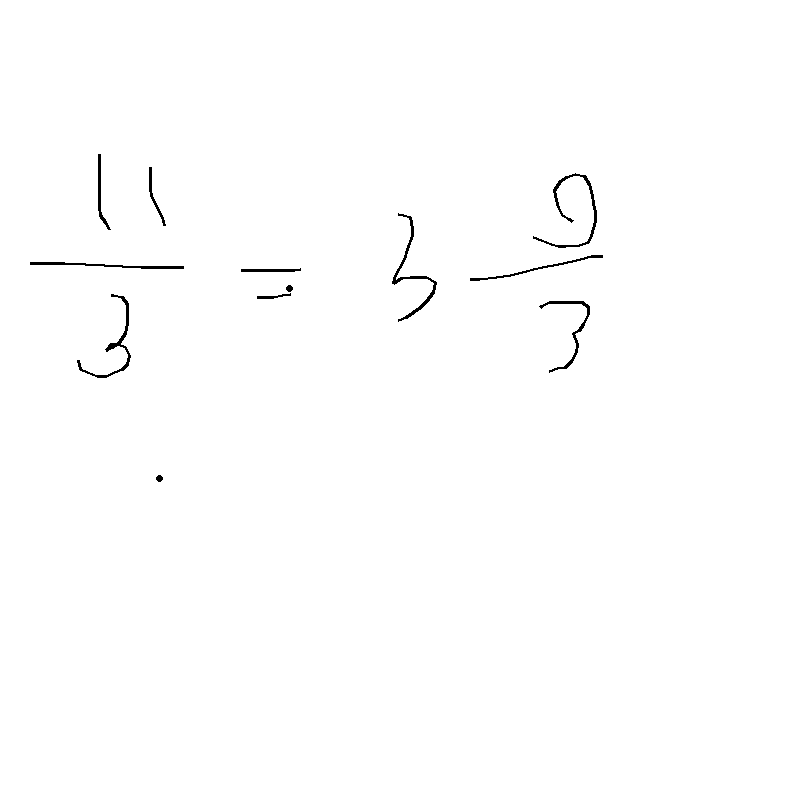 11/3 = 3 9/3